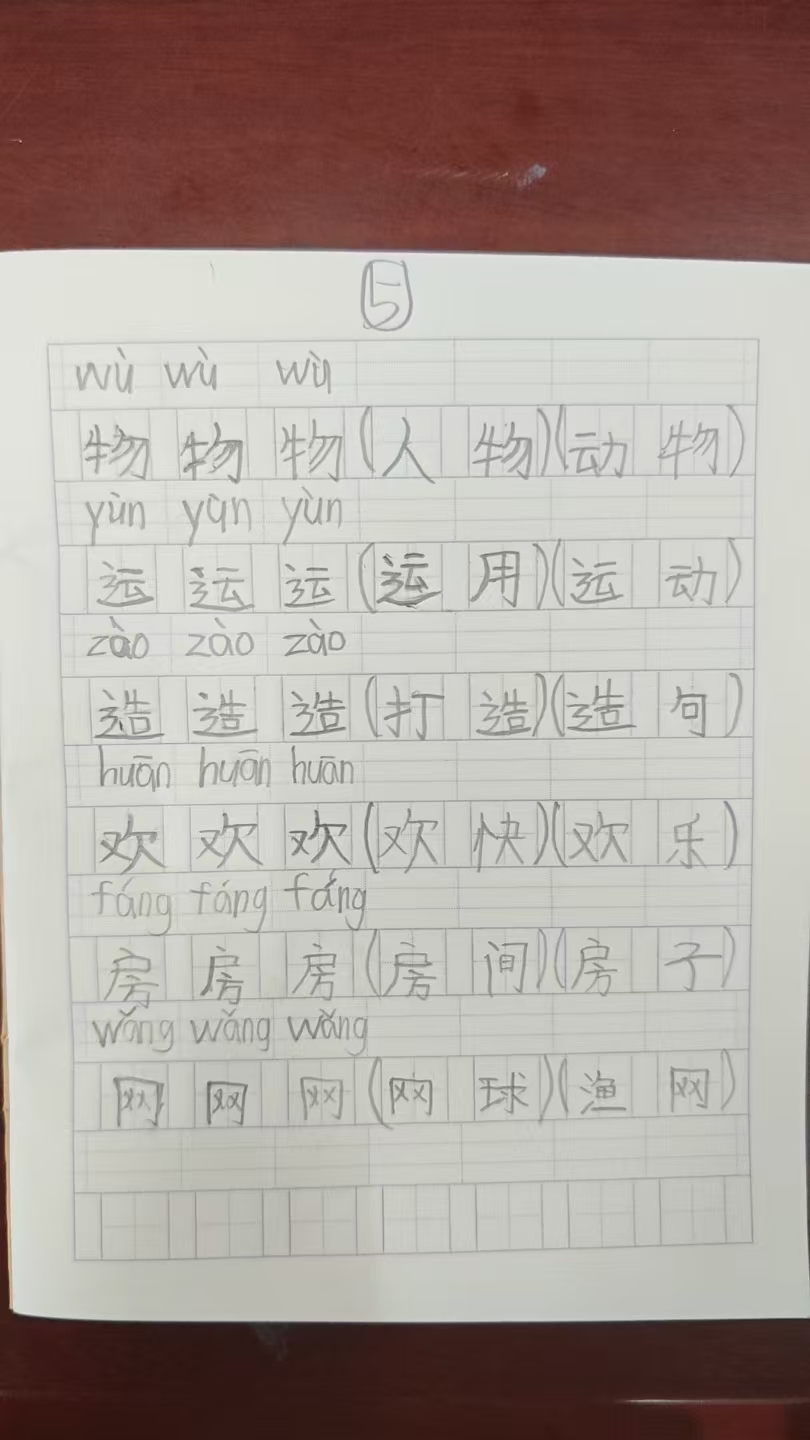 5
wù wù wù
物物物(人物)(动物)
yùn yùn yùn
运运运(运用)(运动)
zào zào zào
造造造(打造)(造句)
huān huān huān
欢欢欢(欢快)(欢乐)
fáng fáng fáng
房房房(房间)(房子)
wǎng wǎng wǎng
网网网(网球)(渔网)